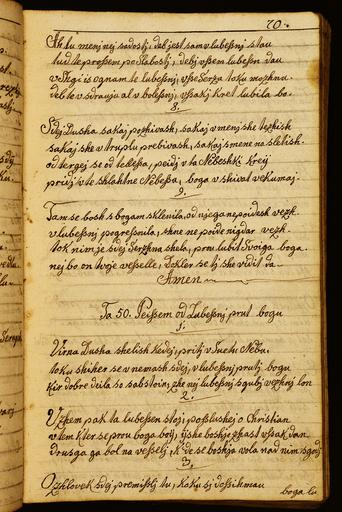 70.
Ah tu menj nej sadostj, deb jest sam v lubesnj stau
tud te prossem po slabostj, debj vssem lubesn dau
v sregi is ognam te lubesnj, vse serza toku moshnu
deb te v sdrauju al v bolesnj, vsakj kret lubila bo.
8.
Sdej Dusha sakaj pozhivash, sakaj v menj ske tezhish
sakaj ske v truplu prebivash, sakaj smene na sletish
od tergej se od telessa, pejdj v ta Nebeshki kreij
pridj v te shlahtne Nebessa, boga vshivat vekumaj.
9.
Tam se bosh s bogam sklenila, od njega nepojdesh vezh
v lubesnj pogresnila, ta ne pojde nigdar vezh
tok nim je sdej Serzhna shela, prou lubit svojga boga
nej bo on tvoje vesselle, dokler se tj ske vidit da
Amen
Ta 50. Peissem od Lubesnj prut bogu
1.
Virna Dusha shelish kedej, pritj v Svetu Nebu
toku skuher se v nemash sdej, v lubesnj prutj bogu
kir dobre dela so sabstoin, zhe nej lubesnj sgubj vezhnj lon
2.
Vzhem pak ta lubesen stoji, poslushej o Christian
v tem kter se prou boga boij, ijshe boshje zhast vsak dan
drusga ga bol na vesselj, k de se boshja vola nad nim sgodj
3.
O zhlovek sdej premislj tu, kaku sj dossihmau
boga lu